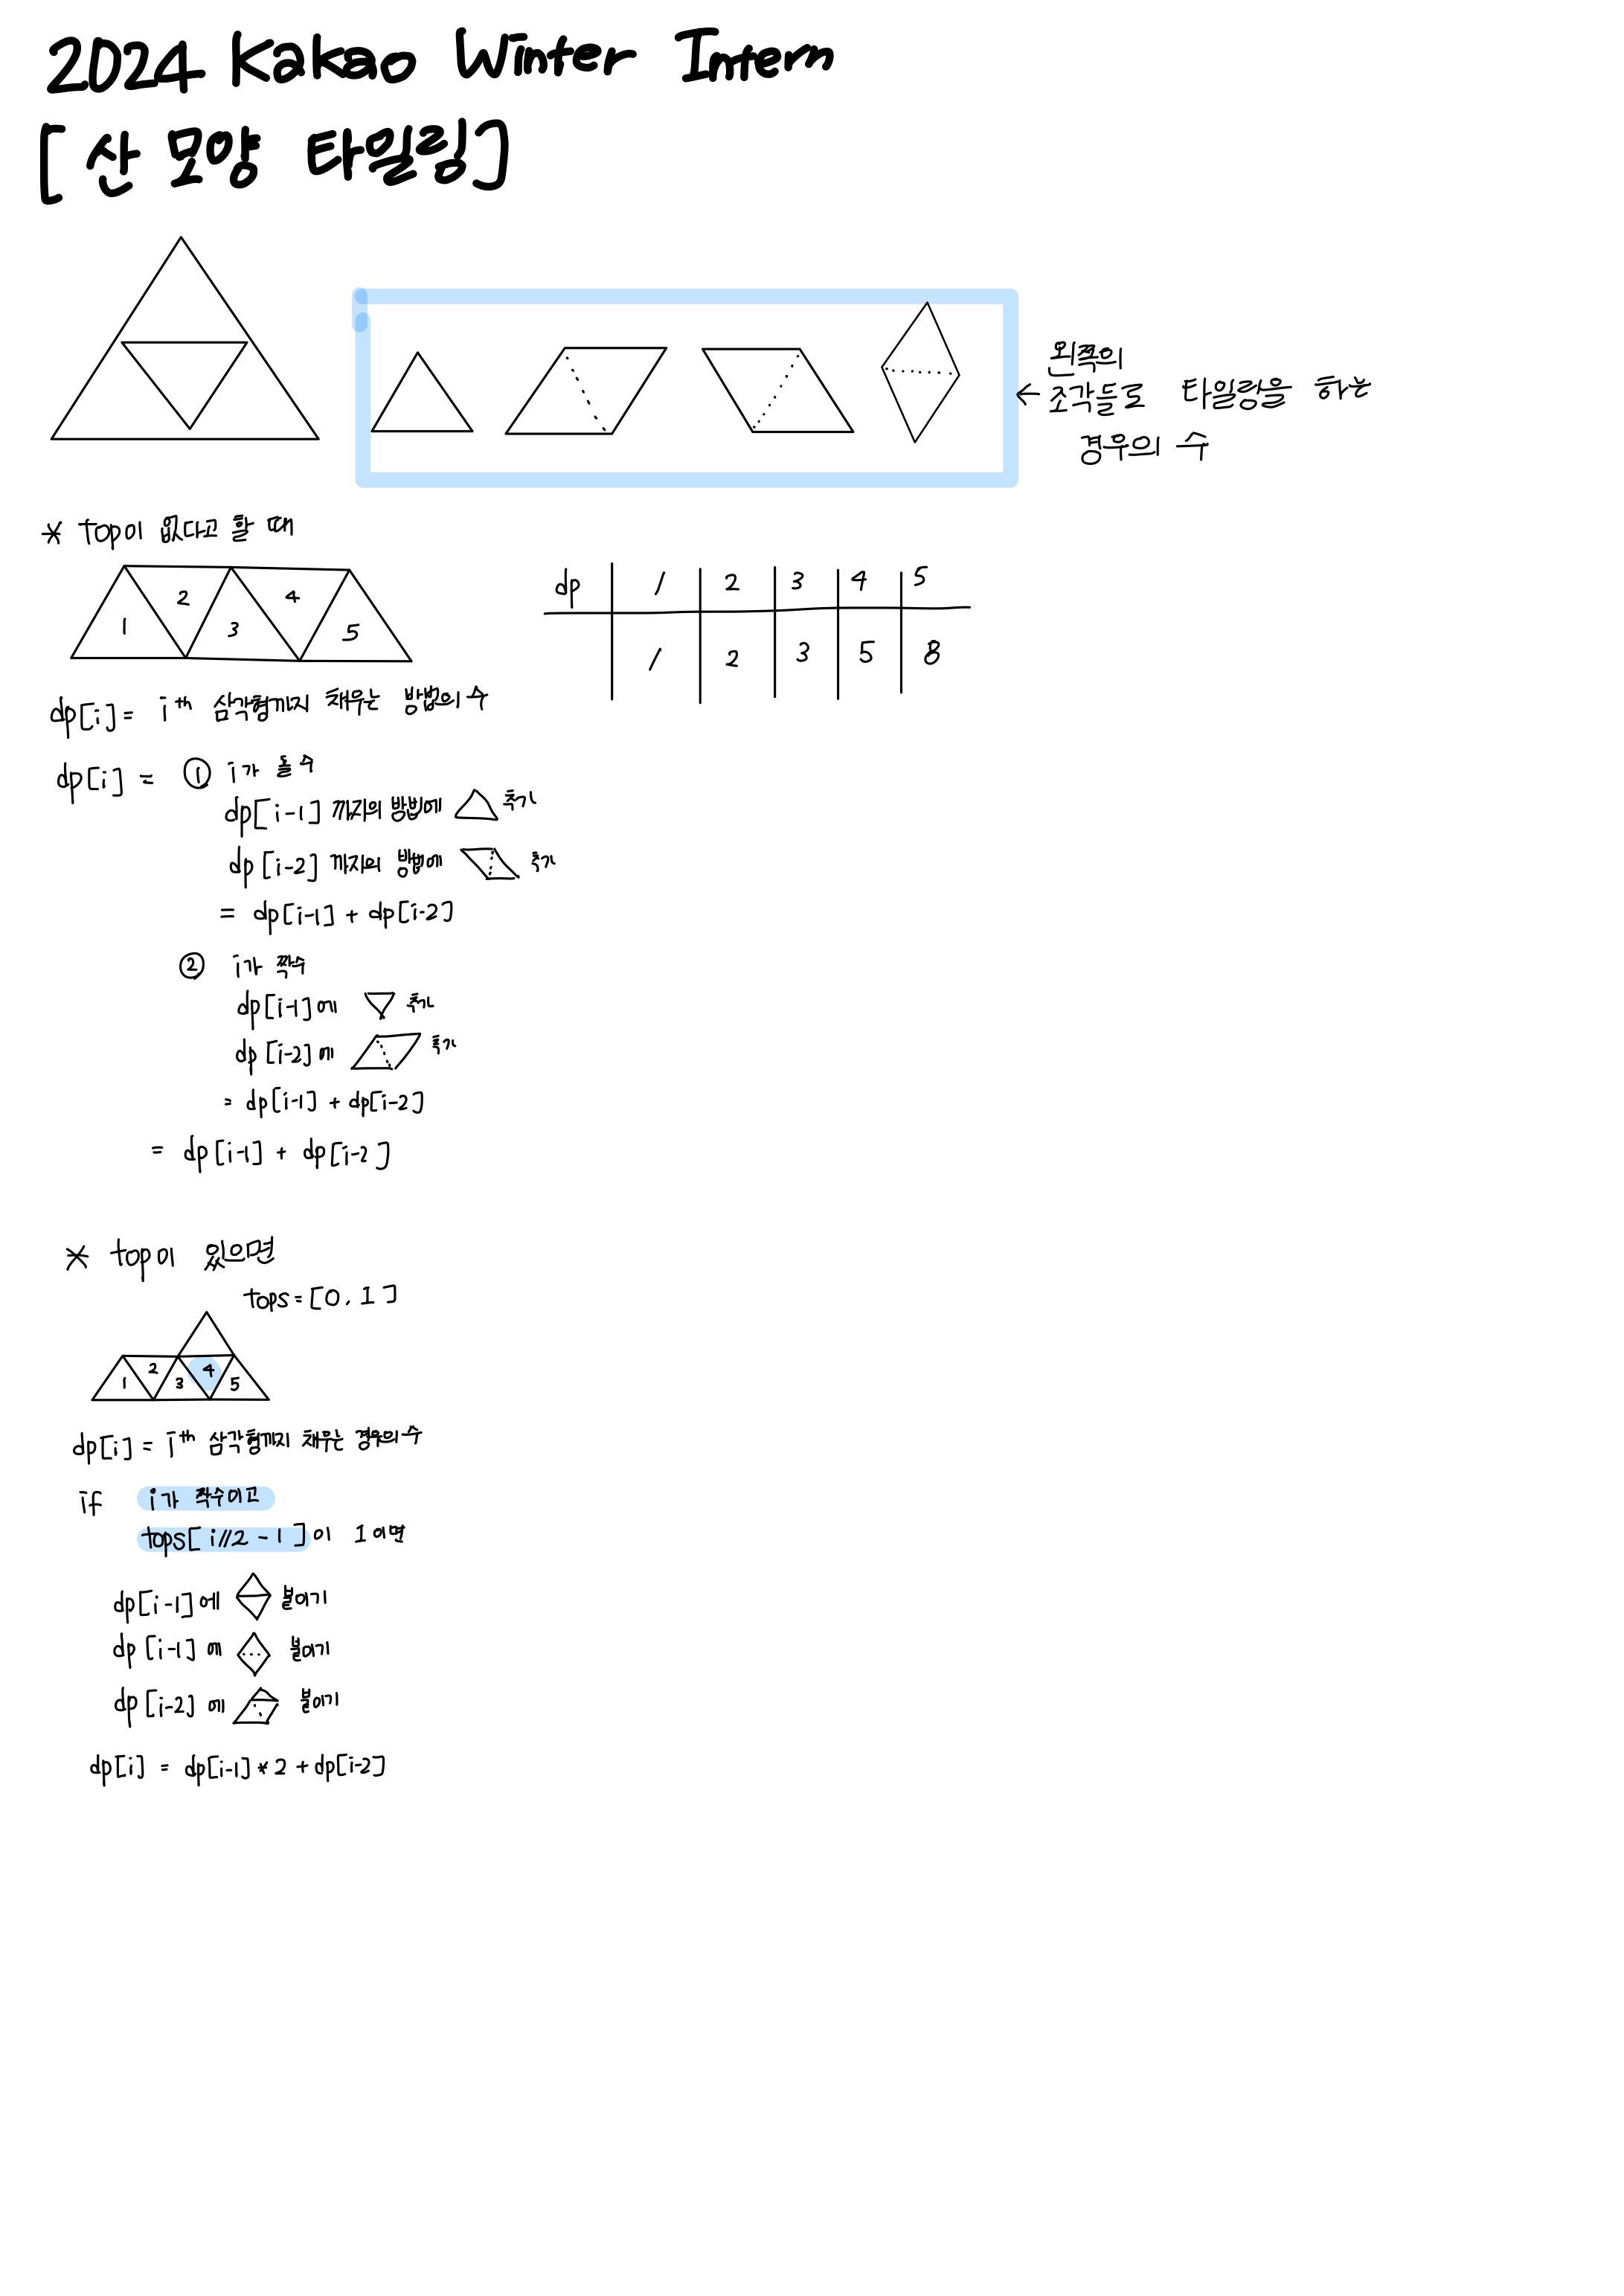 2024 Kakao Winter Intern
[산 모양 타일링]
왼쪽의
← 조각들로 타일링을 하는
경우의 수
* top이 없다고 할 때
1 2 3 4 5
dp 1 2 3 4 5
1 2 3 5 8
dp[i] = i th 삼각형까지 채우는 방법의 수
dp[i] = ① i가 홀수
dp[i-1] 까지의 방법에 추가
dp[i-2] 까지의 방법에 추가
= dp[i-1] + dp[i-2]
② i가 짝수
dp[i-1]에 추가
dp[i-2]에 추가
= dp[i-1] + dp[i-2]
= dp[i-1] + dp[i-2]
* top이 있으면
tops = [0, 1]
1 2 3 4 5
dp[i] = i th 삼각형까지 채우는 경우의 수
if i가 짝수이고
tops[i//2 - 1]이 1이면
dp[i-1]에 붙이기
dp[i-1]에 붙이기
dp[i-2]에 붙이기
dp[i] = dp[i-1] * 2 + dp[i-2]